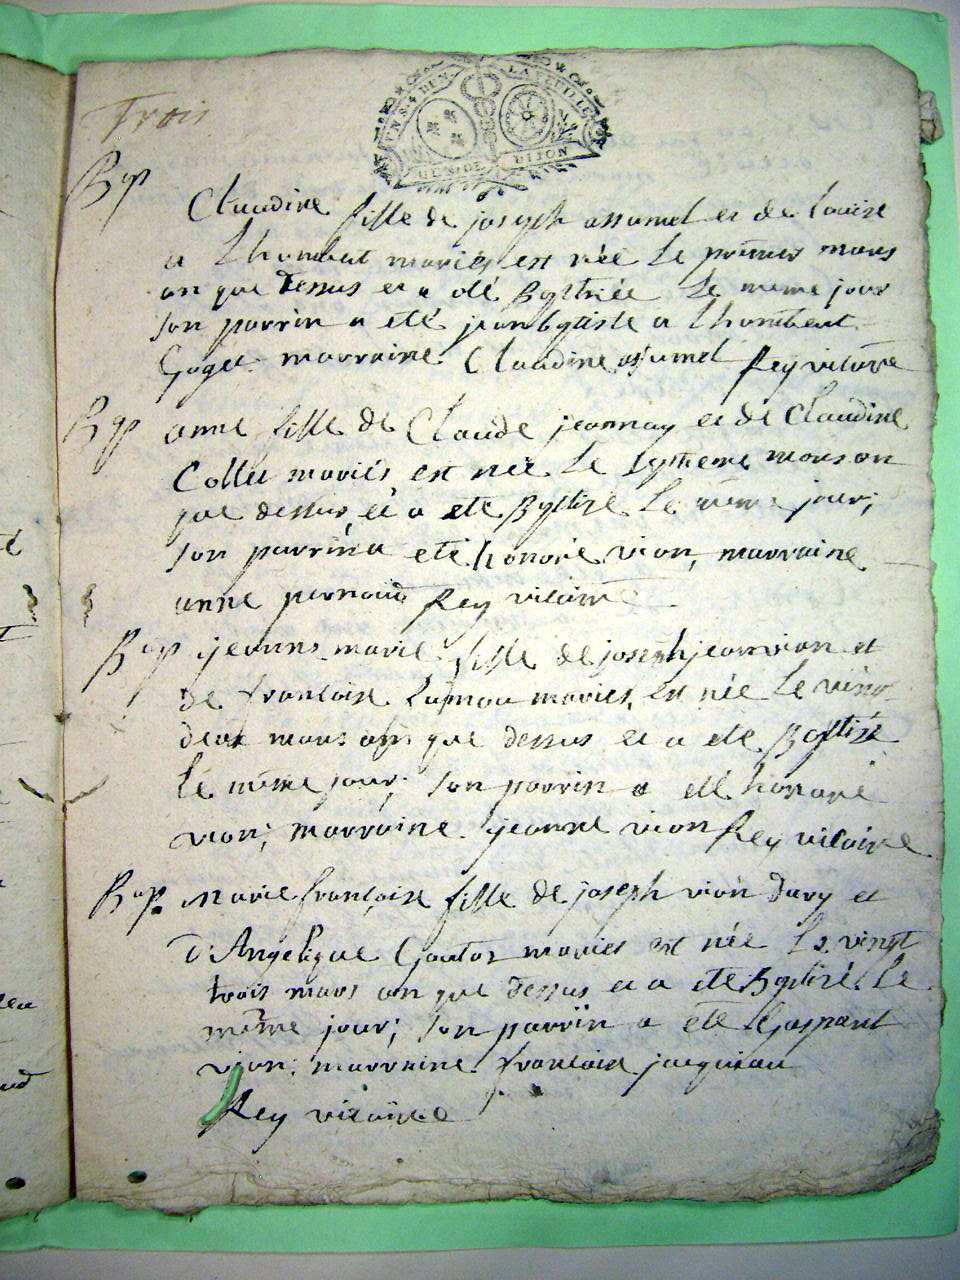 Trois
Bap
Claudine fille de joseph assumel et de Louise
a Lhombert mariés est née Le premier mars
an que dessus et a eté Baptisée Le meme jour
son parrin a eté jean baptiste a Lhombert
Goget marraine Claudine assumel Rey vicaire
Bap anne fille de Claude jeannay et de Claudine
Collet mariés est née Le septieme mars an
que dessus, et a ete Baptise Le même jour;
son parrin a eté honoré vion, marraine
anne pernoud Rey vicaire
Bap jeanne marie fille de joseph jean vion et
de francoise mariés, est née Le vingt
deux mars an que dessus et a ete Baptisée
Le même jour; son parrin a eté honoré
vion; marraine jeanne vion Rey vicaire
Bap. marie françoise fille de joseph vion Dury et
D'Angelique Goutor mariés est née Le vingt
trois mars an que dessus et a ete Baptisé Le
même jour; son parrin a eté Gaspard
vion; marraine francoise jaquinau
Rey vicaire